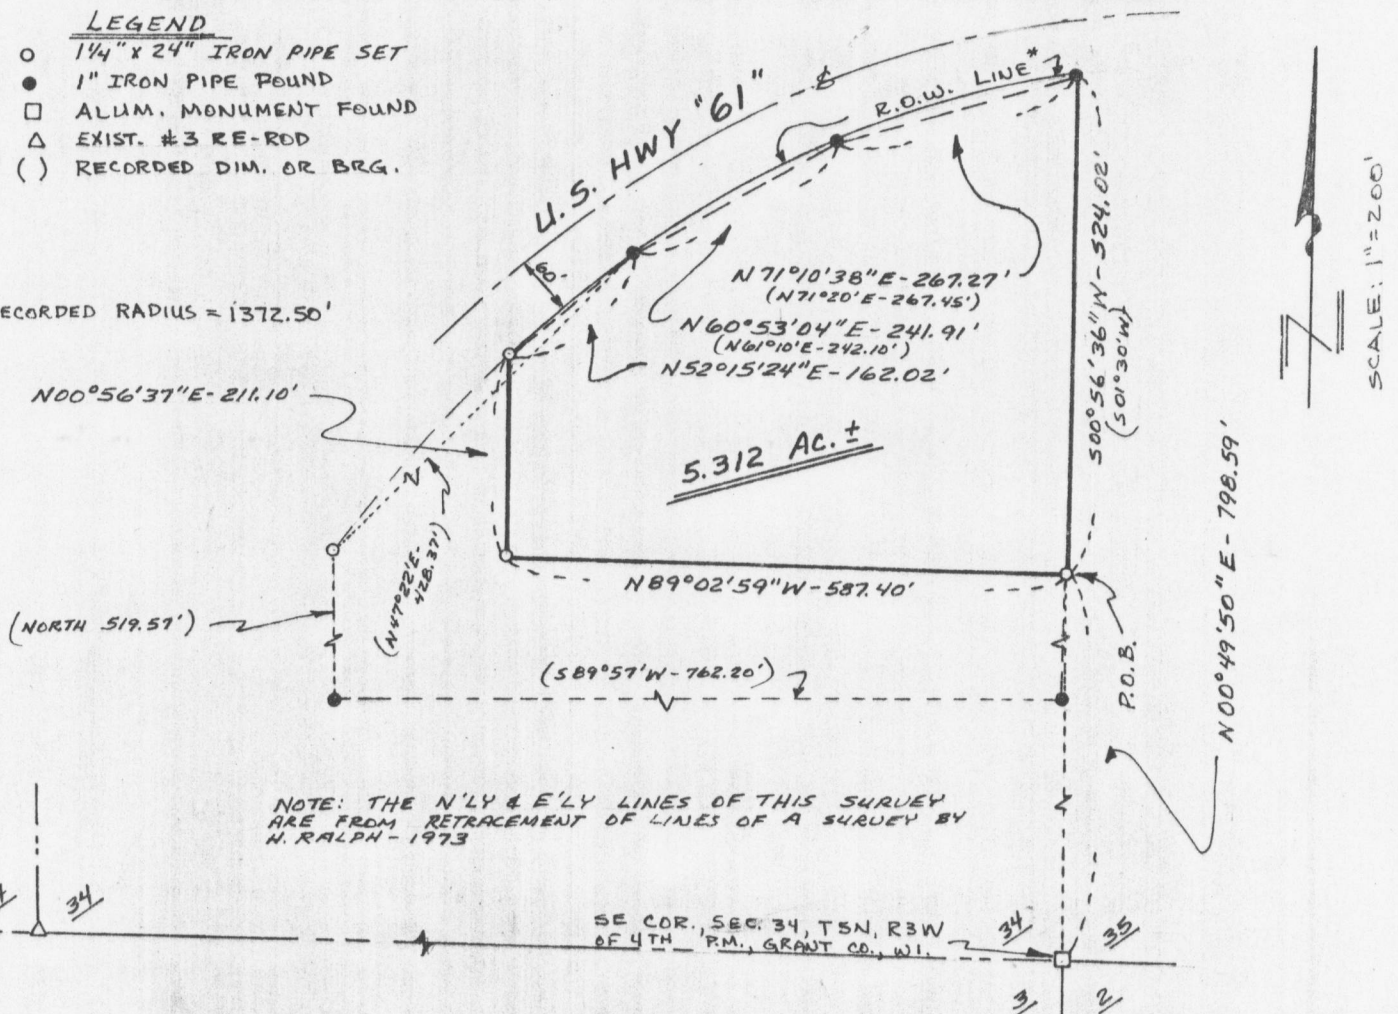 LEGEND
1¼" x 24" IRON PIPE SET
1" IRON PIPE FOUND
ALUM. MONUMENT FOUND
EXIST. #3 RE-ROD
( ) RECORDED DIM. OR BRG.
U.S. HWY "61"
R.O.W. LINE*
ECORDED RADIUS = 1372.50'
N71°10'38"E-267.27'
(N71°20'E-267.45')
N60°53'04"E-241.91'
(N61°10'E-242.10')
N52°15'24"E-162.02'
N00°56'37"E-211.10'
S00°56'36"W-524.02'
(S01°30'W)
SCALE: 1"=200'
5.312 AC.±
(N47°22'E-
428.37')
N89°02'59"W-587.40'
(NORTH 519.57')
(S89°57'W-762.20')
P.O.B.
N00°49'50"E-798.59'
NOTE: THE N'LY & E'LY LINES OF THIS SURVEY
ARE FROM RETRACEMENT OF LINES OF A SURVEY BY
H. RALPH-1973
34
SE COR., SEC. 34, T5N, R3W
OF 4TH P.M., GRANT CO., WI.
34
35
3
2